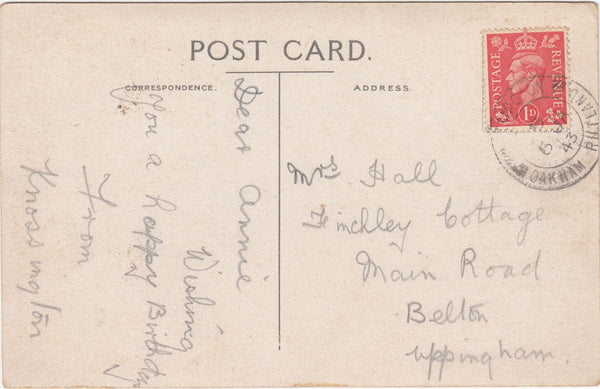 POST CARD.
CORRESPONDENCE.
ADDRESS.
Dear Annie
Wishing
you a happy Birthday
From
Knossington
POSTAGE
REVENUE
1D
OAKHAM RUTLAND
43
Mrs Hall
Finchley Cottage
Main Road
Belton
uppingham.